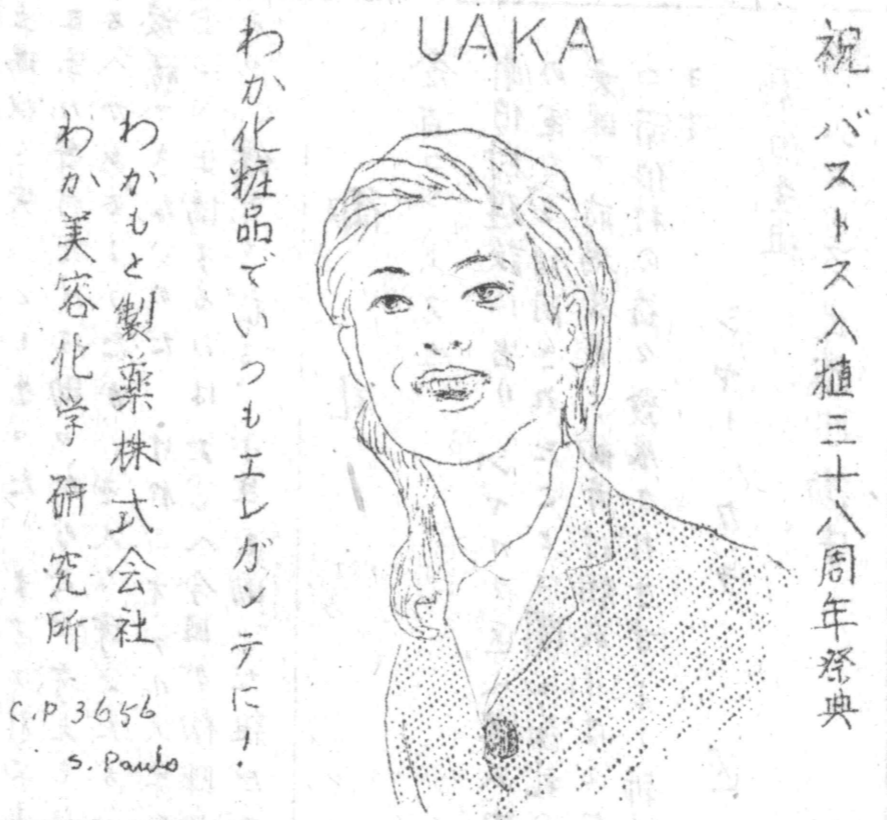 祝 バストス入植三十八周年祭典
UAKA
わか化粧品でいつもエレガンテに!
わかもと製薬株式会社
わか美容化学研究所
C.P 3656
S. Paulo